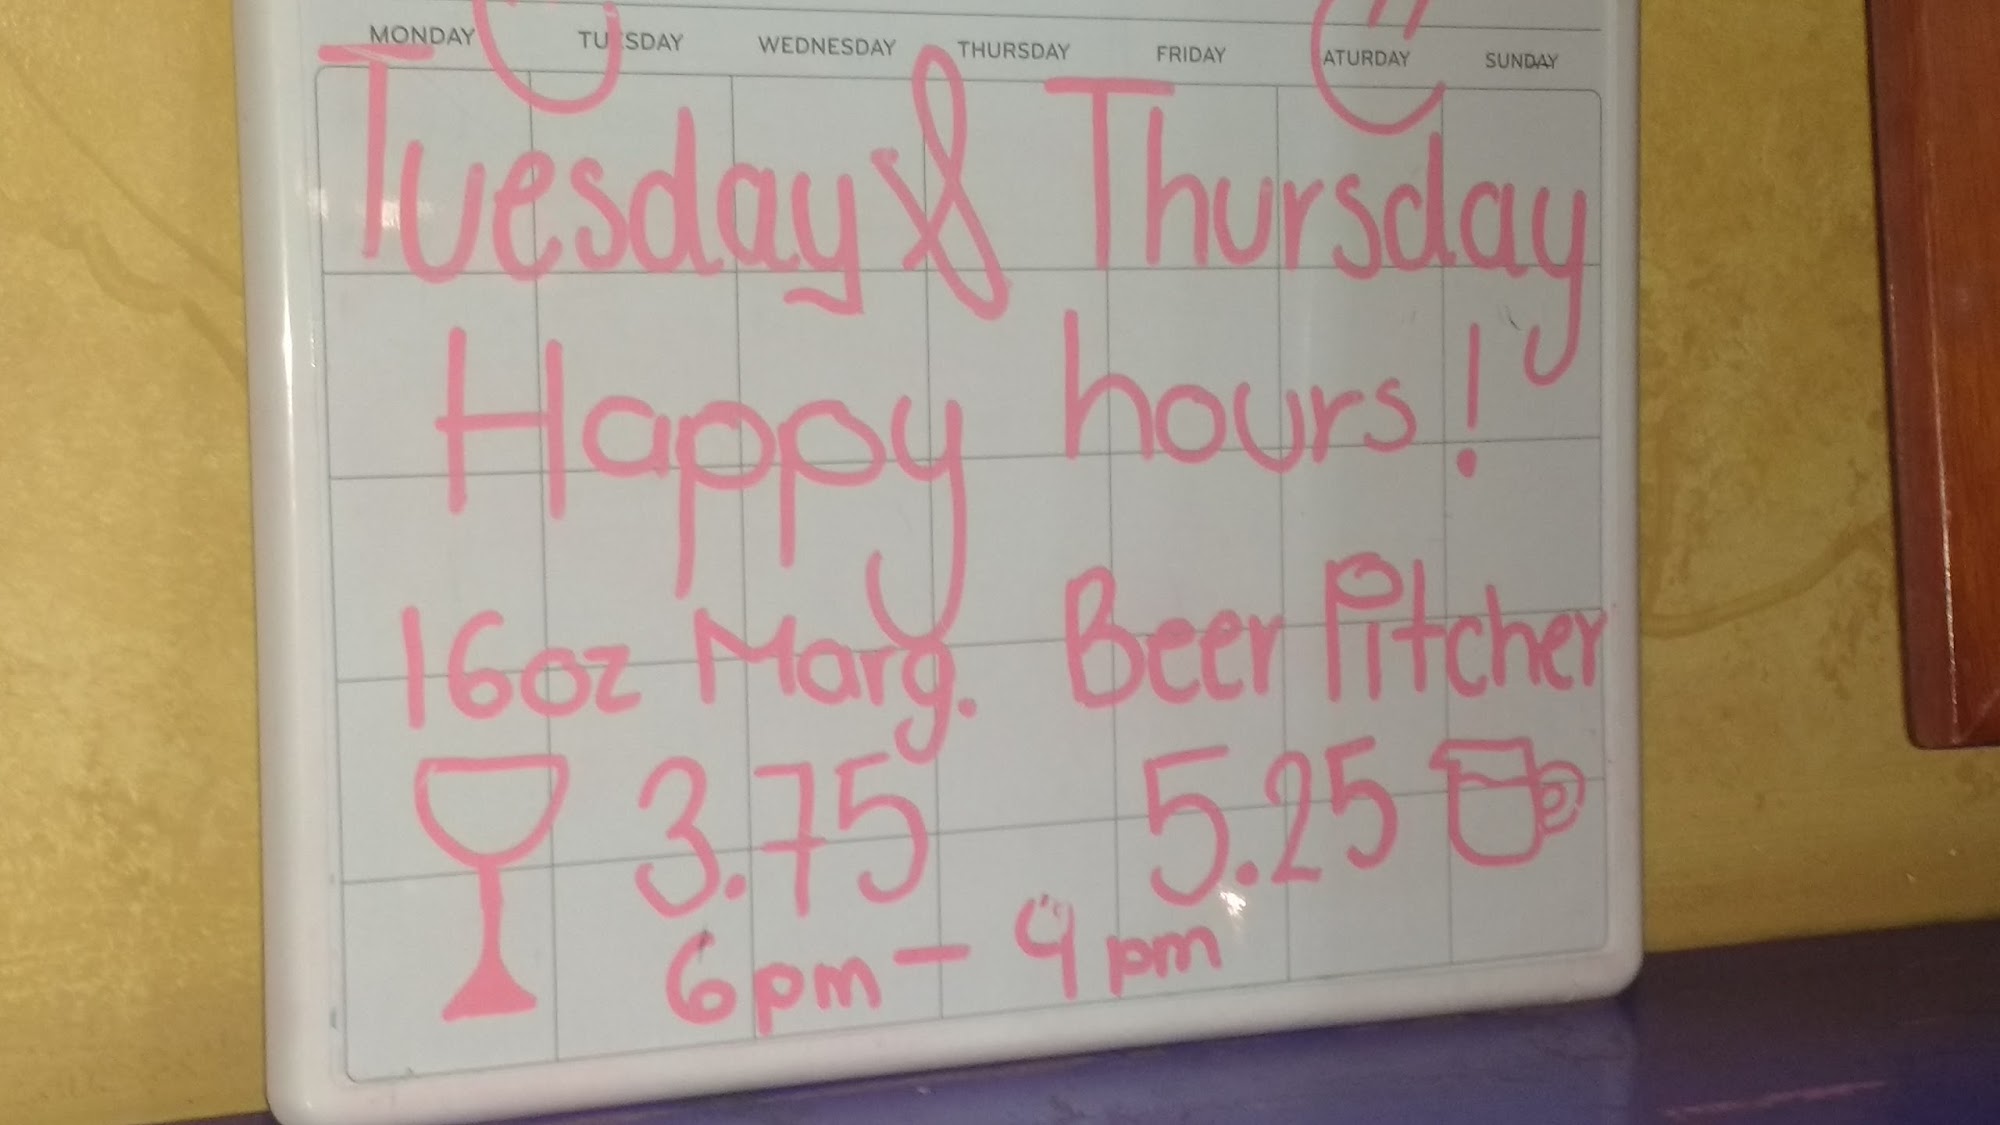 MONDAY TUESDAY WEDNESDAY THURSDAY FRIDAY SATURDAY SUNDAY
Tuesday & Thursday
Happy hours!
16oz Marg. Beer Pitcher
3.75 5.25
6pm - 9pm